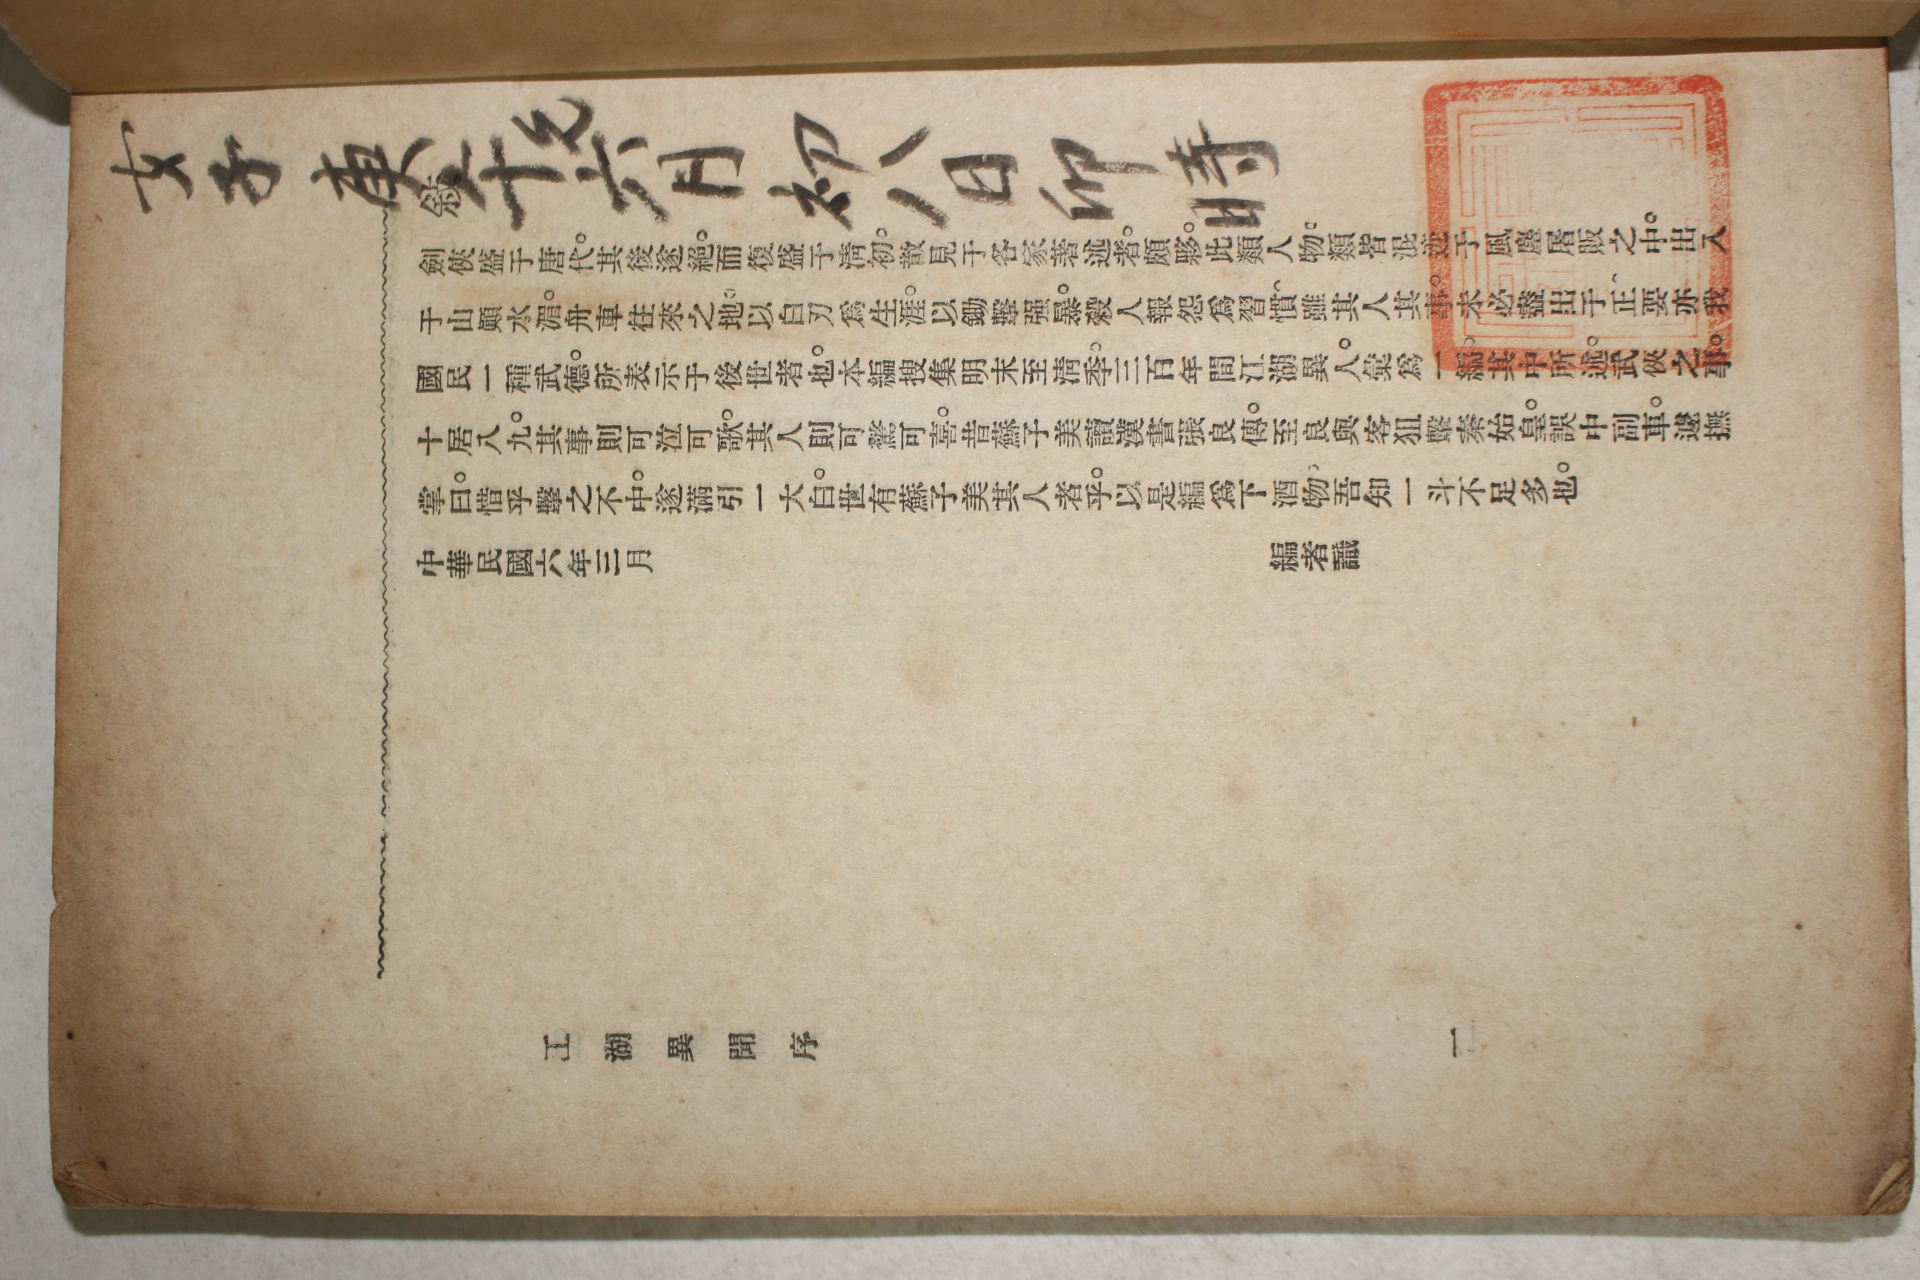 女子庚五十九六月初八日卯時
敍
劍俠盛于唐代。其後遂絕。而復盛于淸初。散見于名家著述者。頗夥。此類人物。類皆混迹于風塵屠販之中。出入
于山顚水湄。舟車往來之地。以白刃爲生涯。以鋤擊强暴。殺人報怨爲習慣、雖其人其事。未必盡出于正、要亦我
國民一種武德。所表示于後世者也。本編搜集明末至淸季。三百年間江湖異人。彙爲一編。其中所述。武俠之事。
十居八九。其事則可泣可歌。其人則可驚可喜。昔蘇子美讀漢書張良傳。至良與客狙擊秦始皇。誤中副車。遽撫
掌曰。惜乎擊之不中。遂滿引一大白。世有蘇子美其人者乎。以是編爲下酒物、吾知一斗不足多也。
中華民國六年三月 編者識
江湖異聞序 一